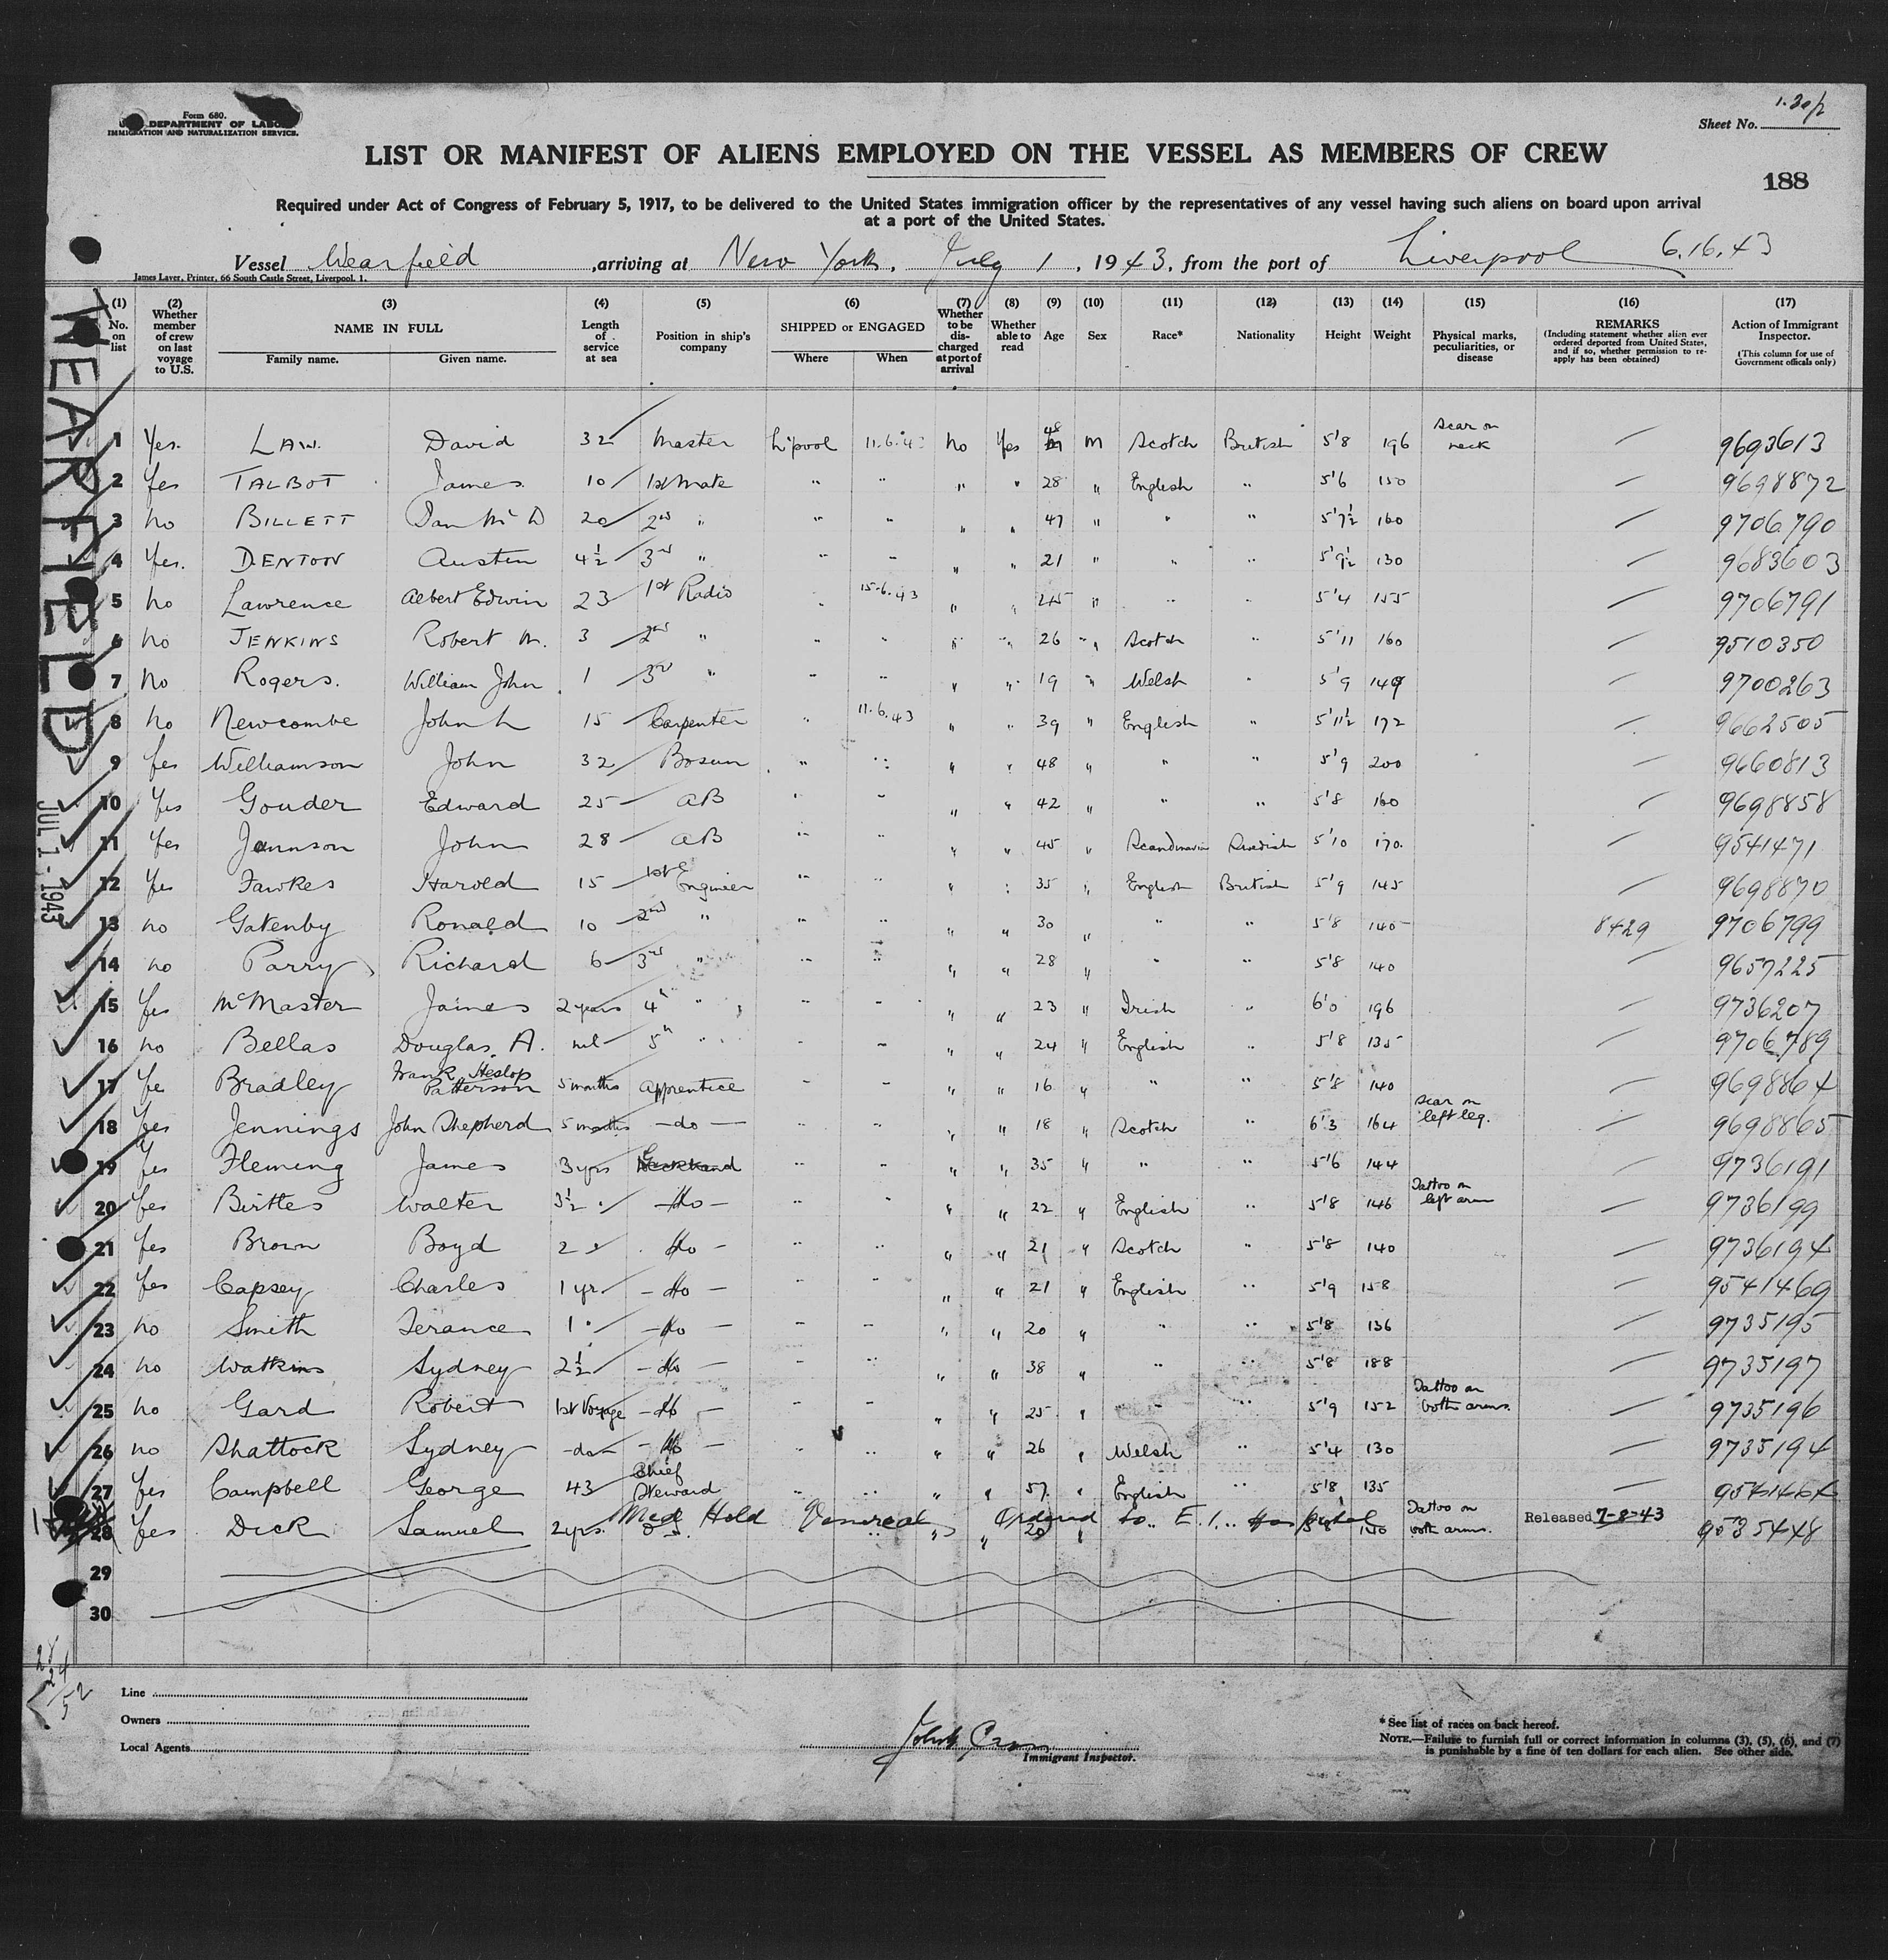 Form 680.
U.S. DEPARTMENT OF LABOR
IMMIGRATION AND NATURALIZATION SERVICE.
1.30p
Sheet No.
LIST OR MANIFEST OF ALIENS EMPLOYED ON THE VESSEL AS MEMBERS OF CREW
188
Required under Act of Congress of February 5, 1917, to be delivered to the United States immigration officer by the representatives of any vessel having such aliens on board upon arrival
at a port of the United States.
Vessel Wearfield, arriving at New York, July 1, 1943, from the port of Liverpool 6.16.43
James Laver, Printer, 66 South Castle Street, Liverpool. 1.
WEARFIELD
JUL 1 - 1943
(1) No. on list (2) Whether member of crew on last voyage to U.S. (3) NAME IN FULL Family name. Given name. (4) Length of service at sea (5) Position in ship's company (6) SHIPPED or ENGAGED Where When (7) Whether to be discharged at port of arrival (8) Whether able to read (9) Age (10) Sex (11) Race* (12) Nationality (13) Height (14) Weight (15) Physical marks, peculiarities, or disease (16) REMARKS (Including statement whether alien ever ordered deported from United States, and if so, whether permission to re-apply has been obtained) (17) Action of Immigrant Inspector. (This column for use of Government officials only)
1 Yes. LAW. David 32 Master L'pool 11.6.43 No Yes 48 M Scotch British 5'8 196 Scar on neck — 9693613
2 Yes TALBOT James 10 1st Mate " " " " 28 " English " 5'6 150 — 9698872
3 No BILLETT Dan Mc D 20 2nd " " " " " 47 " " " 5'7½ 160 — 9706790
4 Yes. DENTON Austin 4½ 3rd " " " " " 21 " " " 5'9½ 130 — 9683603
5 No Lawrence Albert Edwin 23 1st Radio " 15.6.43 " " 45 " " " 5'4 155 — 9706791
6 No JENKINS Robert M. 3 2nd " " " " " 26 " Scotch " 5'11 160 — 9510350
7 No Rogers. William John 1 3rd " " " " " 19 " Welsh " 5'9 149 — 9700263
8 No Newcombe John L 15 Carpenter " 11.6.43 " " 39 " English " 5'11½ 172 — 9662505
9 Yes Williamson John 32 Bosun " " " " 48 " " " 5'9 200 — 9660813
10 Yes Gouder Edward 25 AB " " " " 42 " " " 5'8 160 — 9698858
11 Yes Jannson John 28 AB " " " " 45 " Scandinavian Swedish 5'10 170. — 9541471
12 Yes Fawkes Harold 15 1st Engineer " " " " 35 " English British 5'9 145 — 9698870
13 No Gatenby Ronald 10 2nd " " " " " 30 " " " 5'8 140 8429 9706799
14 No Parry Richard 6 3rd " " " " " 28 " " " 5'8 140 — 9657225
15 Yes McMaster James 2 years 4th " " " " " 23 " Irish " 6'0 196 — 9736207
16 No Bellas Douglas A. nil 5th " " " " " 24 " English " 5'8 135 — 9706789
17 Ye Bradley Frank Heslop Patterson 5 months Apprentice " " " " 16 " " " 5'8 140 — 9698864
18 Yes Jennings John Shepherd 5 months —do— " " " " 18 " Scotch " 6'3 164 Scar on left leg. — 9698865
19 Yes Fleming James 3 yrs Deckhand " " " " 35 " " " 5'6 144 — 9736191
20 Yes Birtles Walter 3½ " —do— " " " " 22 " English " 5'8 146 Tattoo on left arm — 9736199
21 Yes Brown Boyd 2 " do — " " " " 21 " Scotch " 5'8 140 — 9736194
22 Yes Capsey Charles 1 yr —do— " " " " 21 " English " 5'9 158 — 9541469
23 No Smith Terance 1 " —do— " " " " 20 " " " 5'8 136 — 9735195
24 No Watkins Sydney 2½ —do— " " " " 38 " " " 5'8 188 — 9735197
25 No Gard Robert 1st Voyage —do— " " " " 25 " " " 5'9 152 Tattoo on both arms. — 9735196
26 No Shattock Sydney —do— —do— " " " " 26 " Welsh " 5'4 130 — 9735194
27 Yes Campbell George 43 Chief Steward " " " " 57. " English " 5'8 135 — 9541464
Med Hold Venereal Ordered to E.I. Hospital
28 Yes Dick Samuel 2 yrs. " " " 20 " 150 Tattoo on both arms. Released 7-8-43 9535448
29
30
28
24
52
Line
Owners
Local Agents
Immigrant Inspector.
* See list of races on back hereof.
NOTE.—Failure to furnish full or correct information in columns (3), (5), (6), and (7)
is punishable by a fine of ten dollars for each alien. See other side.